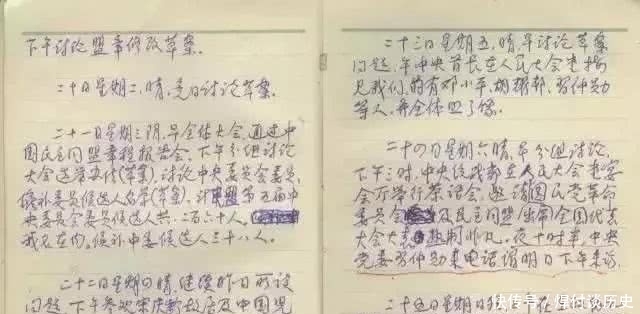 下午讨论盟章修改草案。
二十日星期二,晴,是日讨论草案。
二十一日星期三阴,早全体大会,通过中
国民主同盟章程报告会,下午分组讨论
大会选举办法(草案),讨论中央委员会委员,
候补委员候选人名单(草案),计盟第五届中
央委员会委员候选人共二百六十人。
我也在内。候补中委候选人三十八人。
二十二日星期四晴,继续昨日所设
问题,下午参观宋庆龄故居及中国儿
二十三日星期五,晴,早讨论草案
问题,午中央首长在人民大会堂接
见我们,时有邓小平,胡耀邦,习仲勋
等人,并全体照了像。
二十四日星期六晴,早分组讨论,
下午三时,中央统战部在人民大会堂宴
会厅举行茶话会,邀请国民党革命
委员会及民主同盟出席全国代表
大会代表,热制非凡,夜十时半,中央
党委习仲勋来电话,谓明日下午来访,
二十五日星期日
快传号/得付谈历史